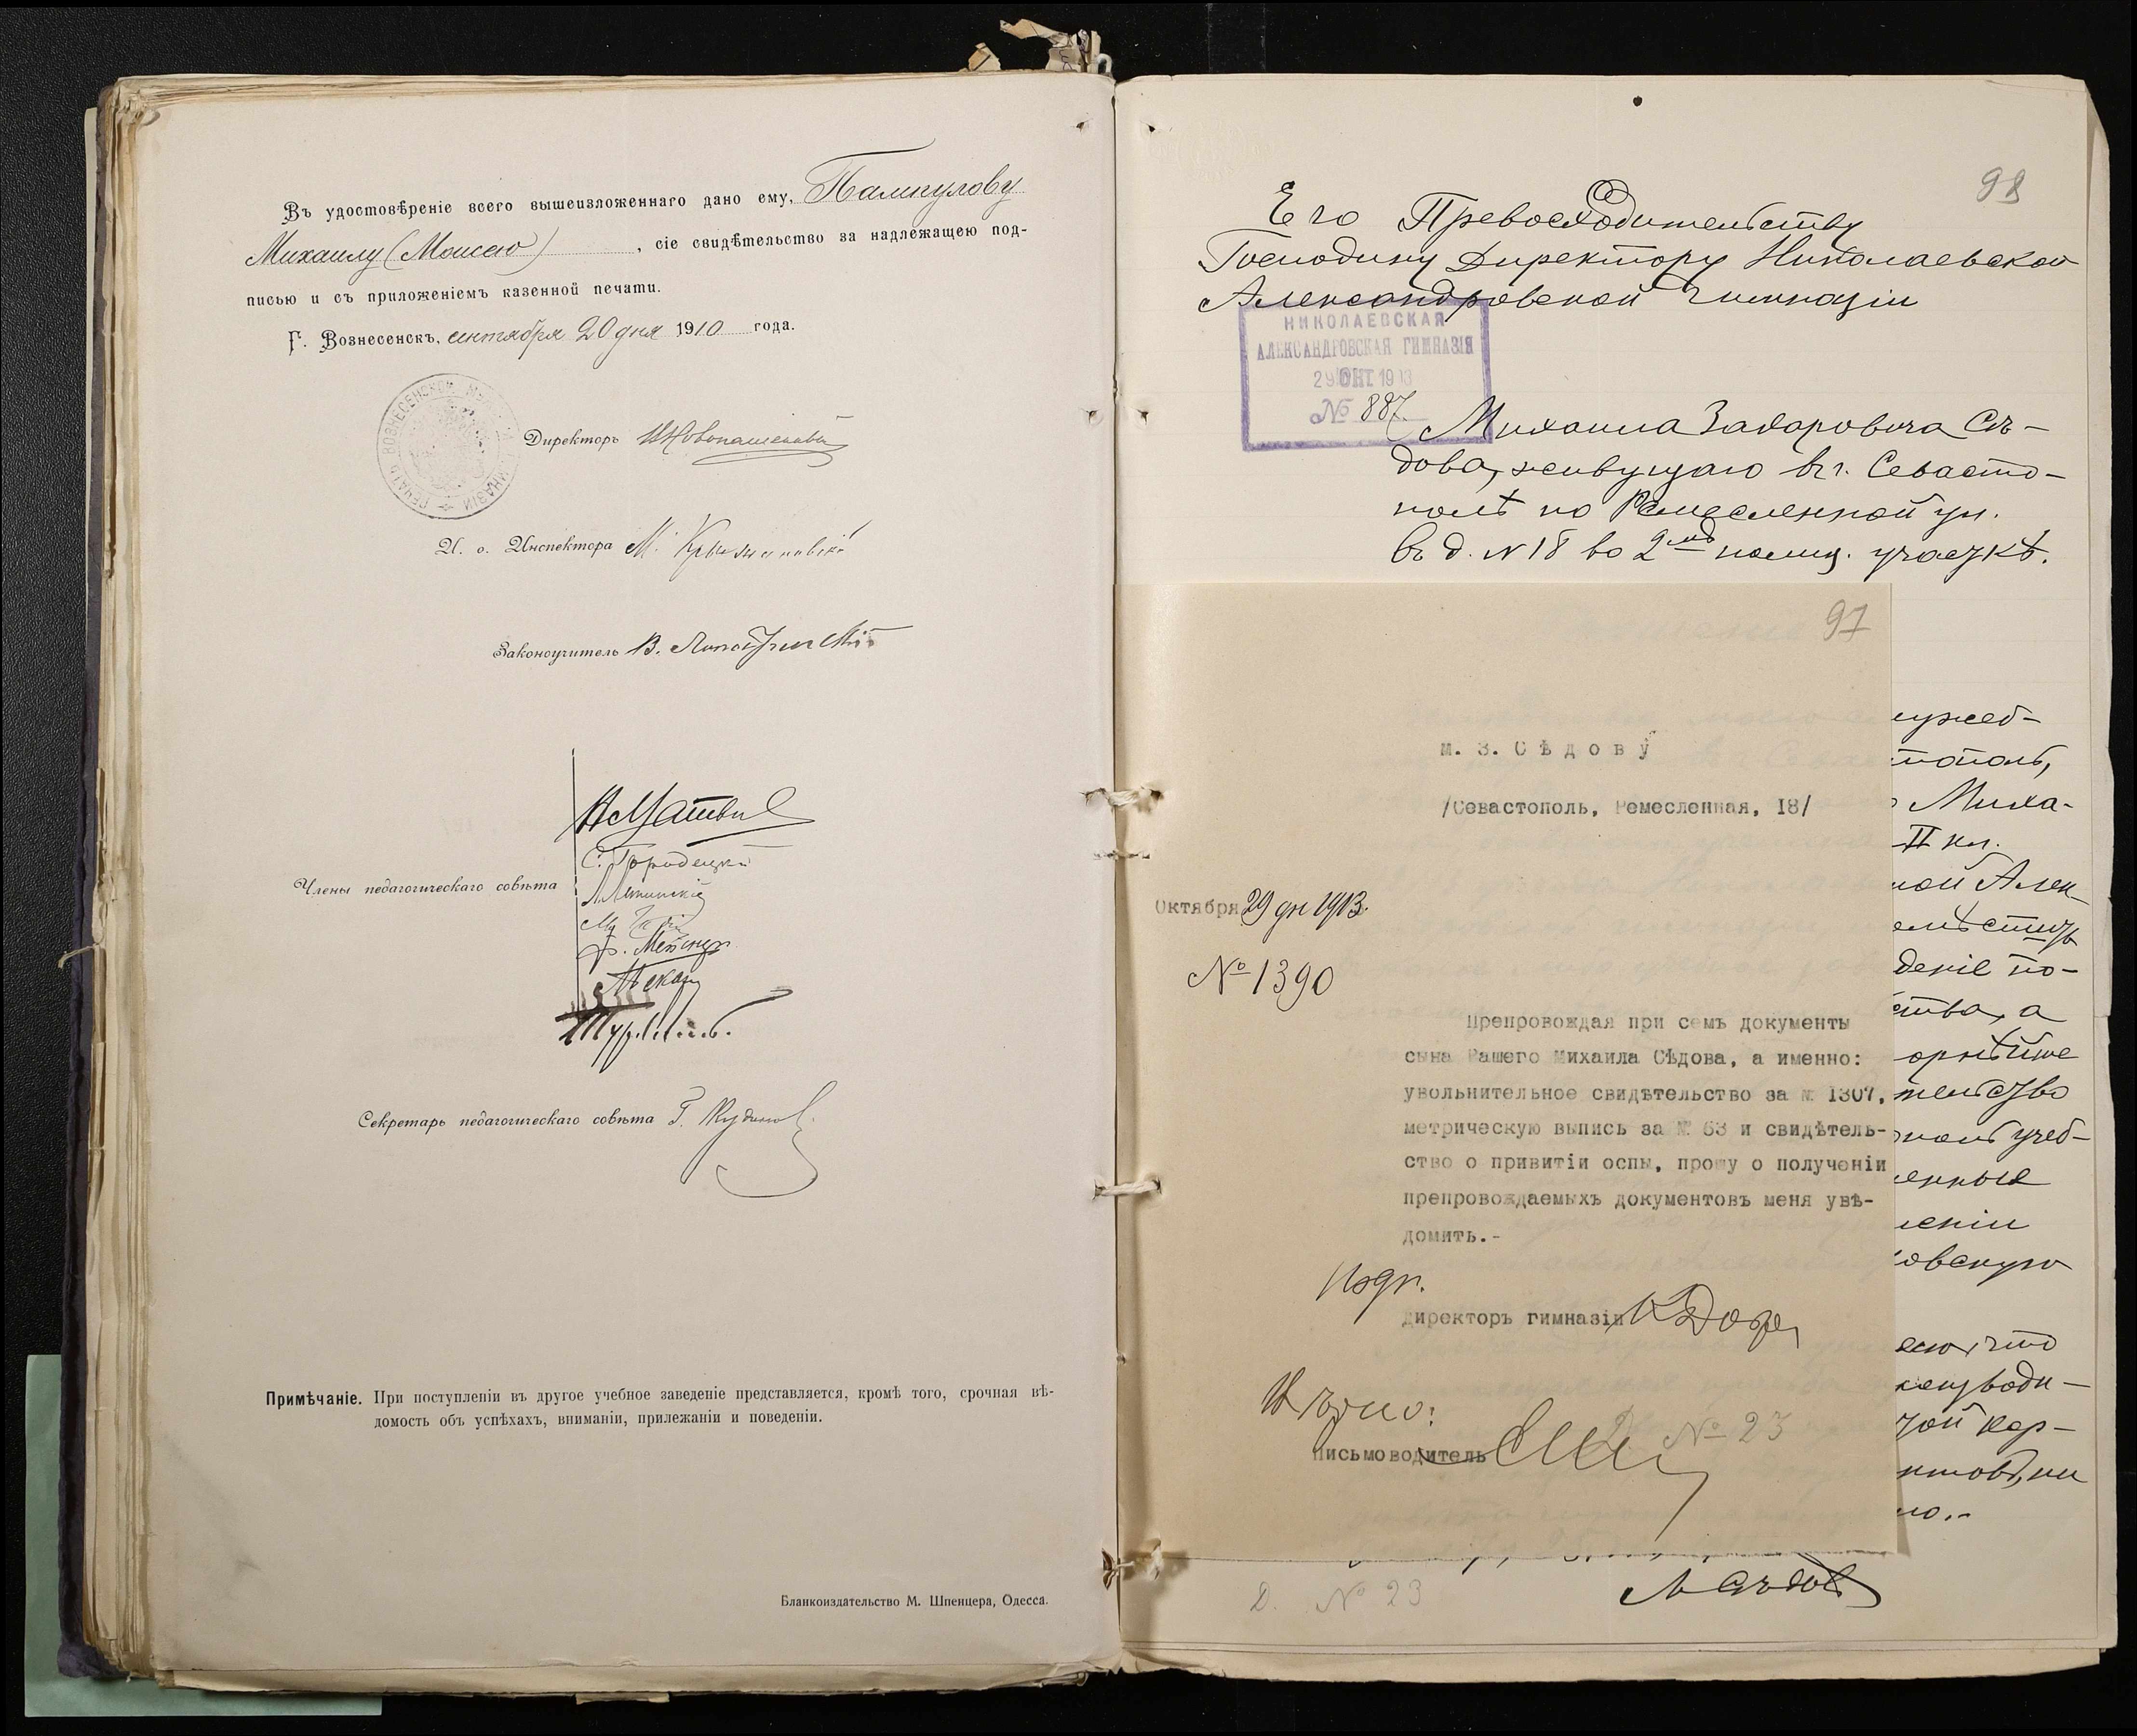 Въ удостовѣреніе всего вышеизложеннаго дано ему, Пампулову
Михаилу (Моисею), сіе свидѣтельство за надлежащею под-
писью и съ приложеніемъ казенной печати.
Г. Вознесенскъ, сентября 20 дня 1910 года.
Директоръ
И. о. Инспектора М.
Законоучитель В.
Члены педагогическаго совѣта
С. Городецкій
Секретарь педагогическаго совѣта Г.
Примѣчаніе. При поступленіи въ другое учебное заведеніе представляется, кромѣ того, срочная вѣ-
домость объ успѣхахъ, вниманіи, прилежаніи и поведеніи.
Бланкоиздательство М. Шпенцера, Одесса.
98
Его Превосходительству
Господину Директору Николаевской
Александровской гимназіи
НИКОЛАЕВСКАЯ
АЛЕКСАНДРОВСКАЯ ГИМНАЗІЯ
29 ОКТ 1913
№ 887
Михаила Захаровича Сѣ-
дова, живущаго въ г. Севасто-
полѣ по Ремесленной ул.
въ д. N 18 во 2мъ полиц. участкѣ.
97
М. З. Сѣдову
/Севастополь, Ремесленная, 18/
Октября 29 дн 1913.
№ 1390
Препровождая при семъ документы
сына Вашего Михаила Сѣдова, а именно:
увольнительное свидѣтельство за № 1307,
метрическую выпись за № 63 и свидѣтель-
ство о привитіи оспы, прошу о полученіи
препровождаемыхъ документовъ меня увѣ-
домить.-
Подп.
Директоръ гимназіи
Вѣрно:
Письмоводитель
№ 23
ужеб-
тополь,
Миха-
II кл.
ной Алек-
емѣстить
деніе по-
ства, а
орнѣйше
тельство
учеб-
енныя
леніи
овскую
что
водн-
той
ни
ло.-
Д. № 23
М Сѣдовъ